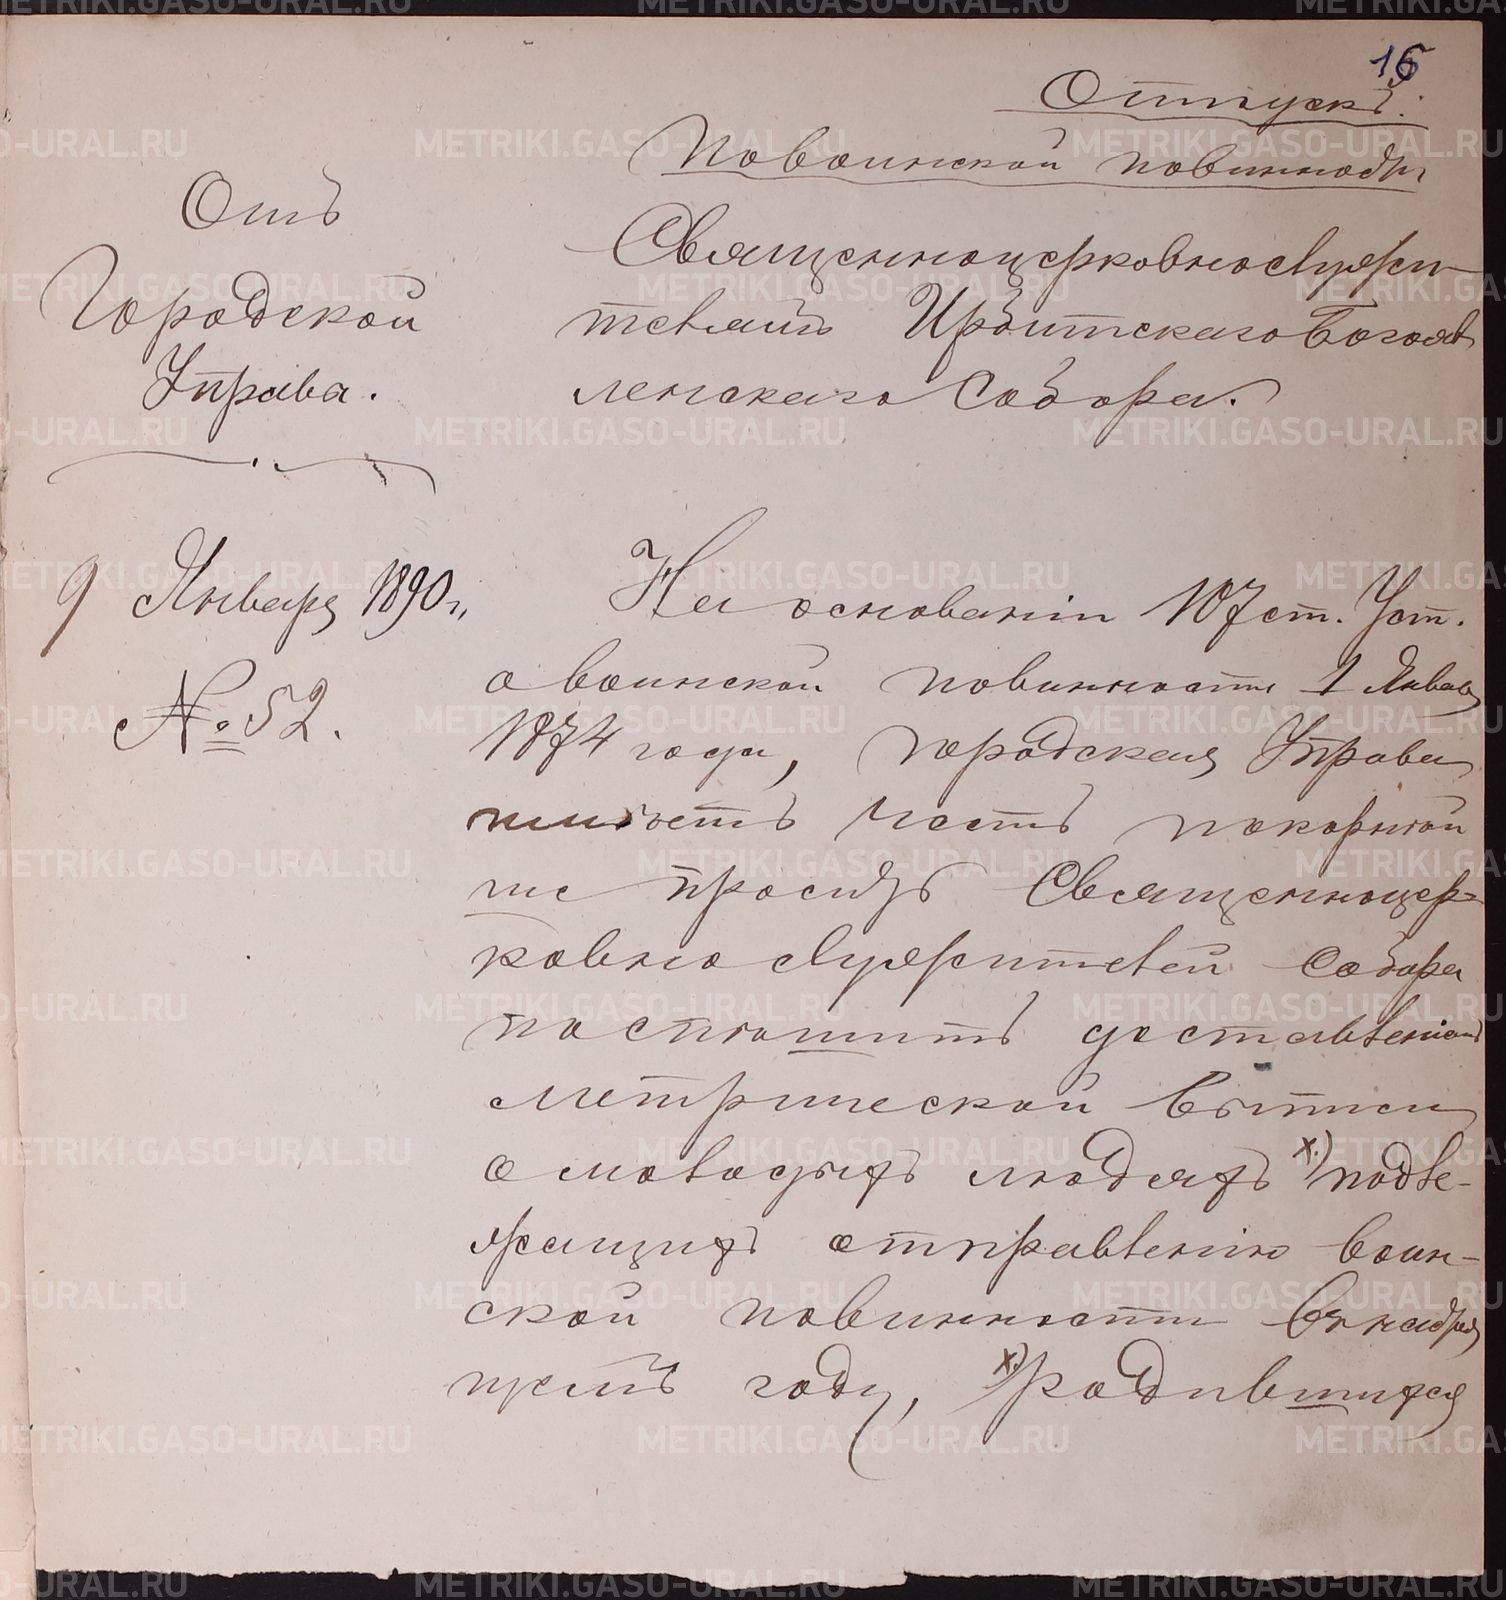 16
Отпускъ.
По воинской повинности
Отъ
Городской
Управа.
9 Января 1890 г.,
№ 52.
Священноцерковнослужи-
телямъ Ирбитскаго Богояв
ленскаго Собора.
На основаніи 107 ст. Уст.
о воинской повинности 1 Января
1874 года, городская Управа
имѣетъ честь покорнѣй
ше просить Священноцер-
ковно служителей Собора
поспѣшить доставленіемъ
метрической выписи
о молодыхъ людяхъ х.) подле-
жащихъ отправленію воин-
ской повинности въ
году, х.) родившихся
METRIKI.GASO-URAL.RU